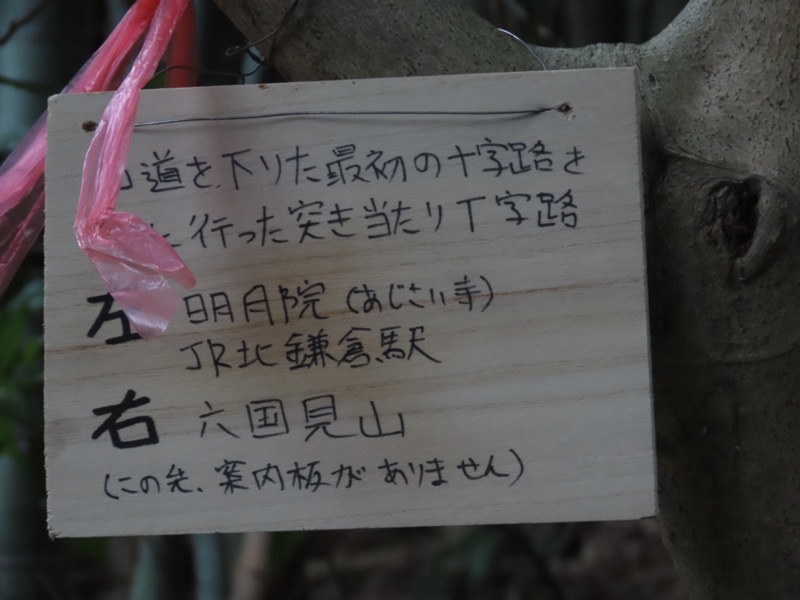 道を下りた最初の十字路を
に行った突き当たりT字路
左 明月院(あじさい寺)
JR北鎌倉駅
右 六国見山
(この先、案内板がありません)